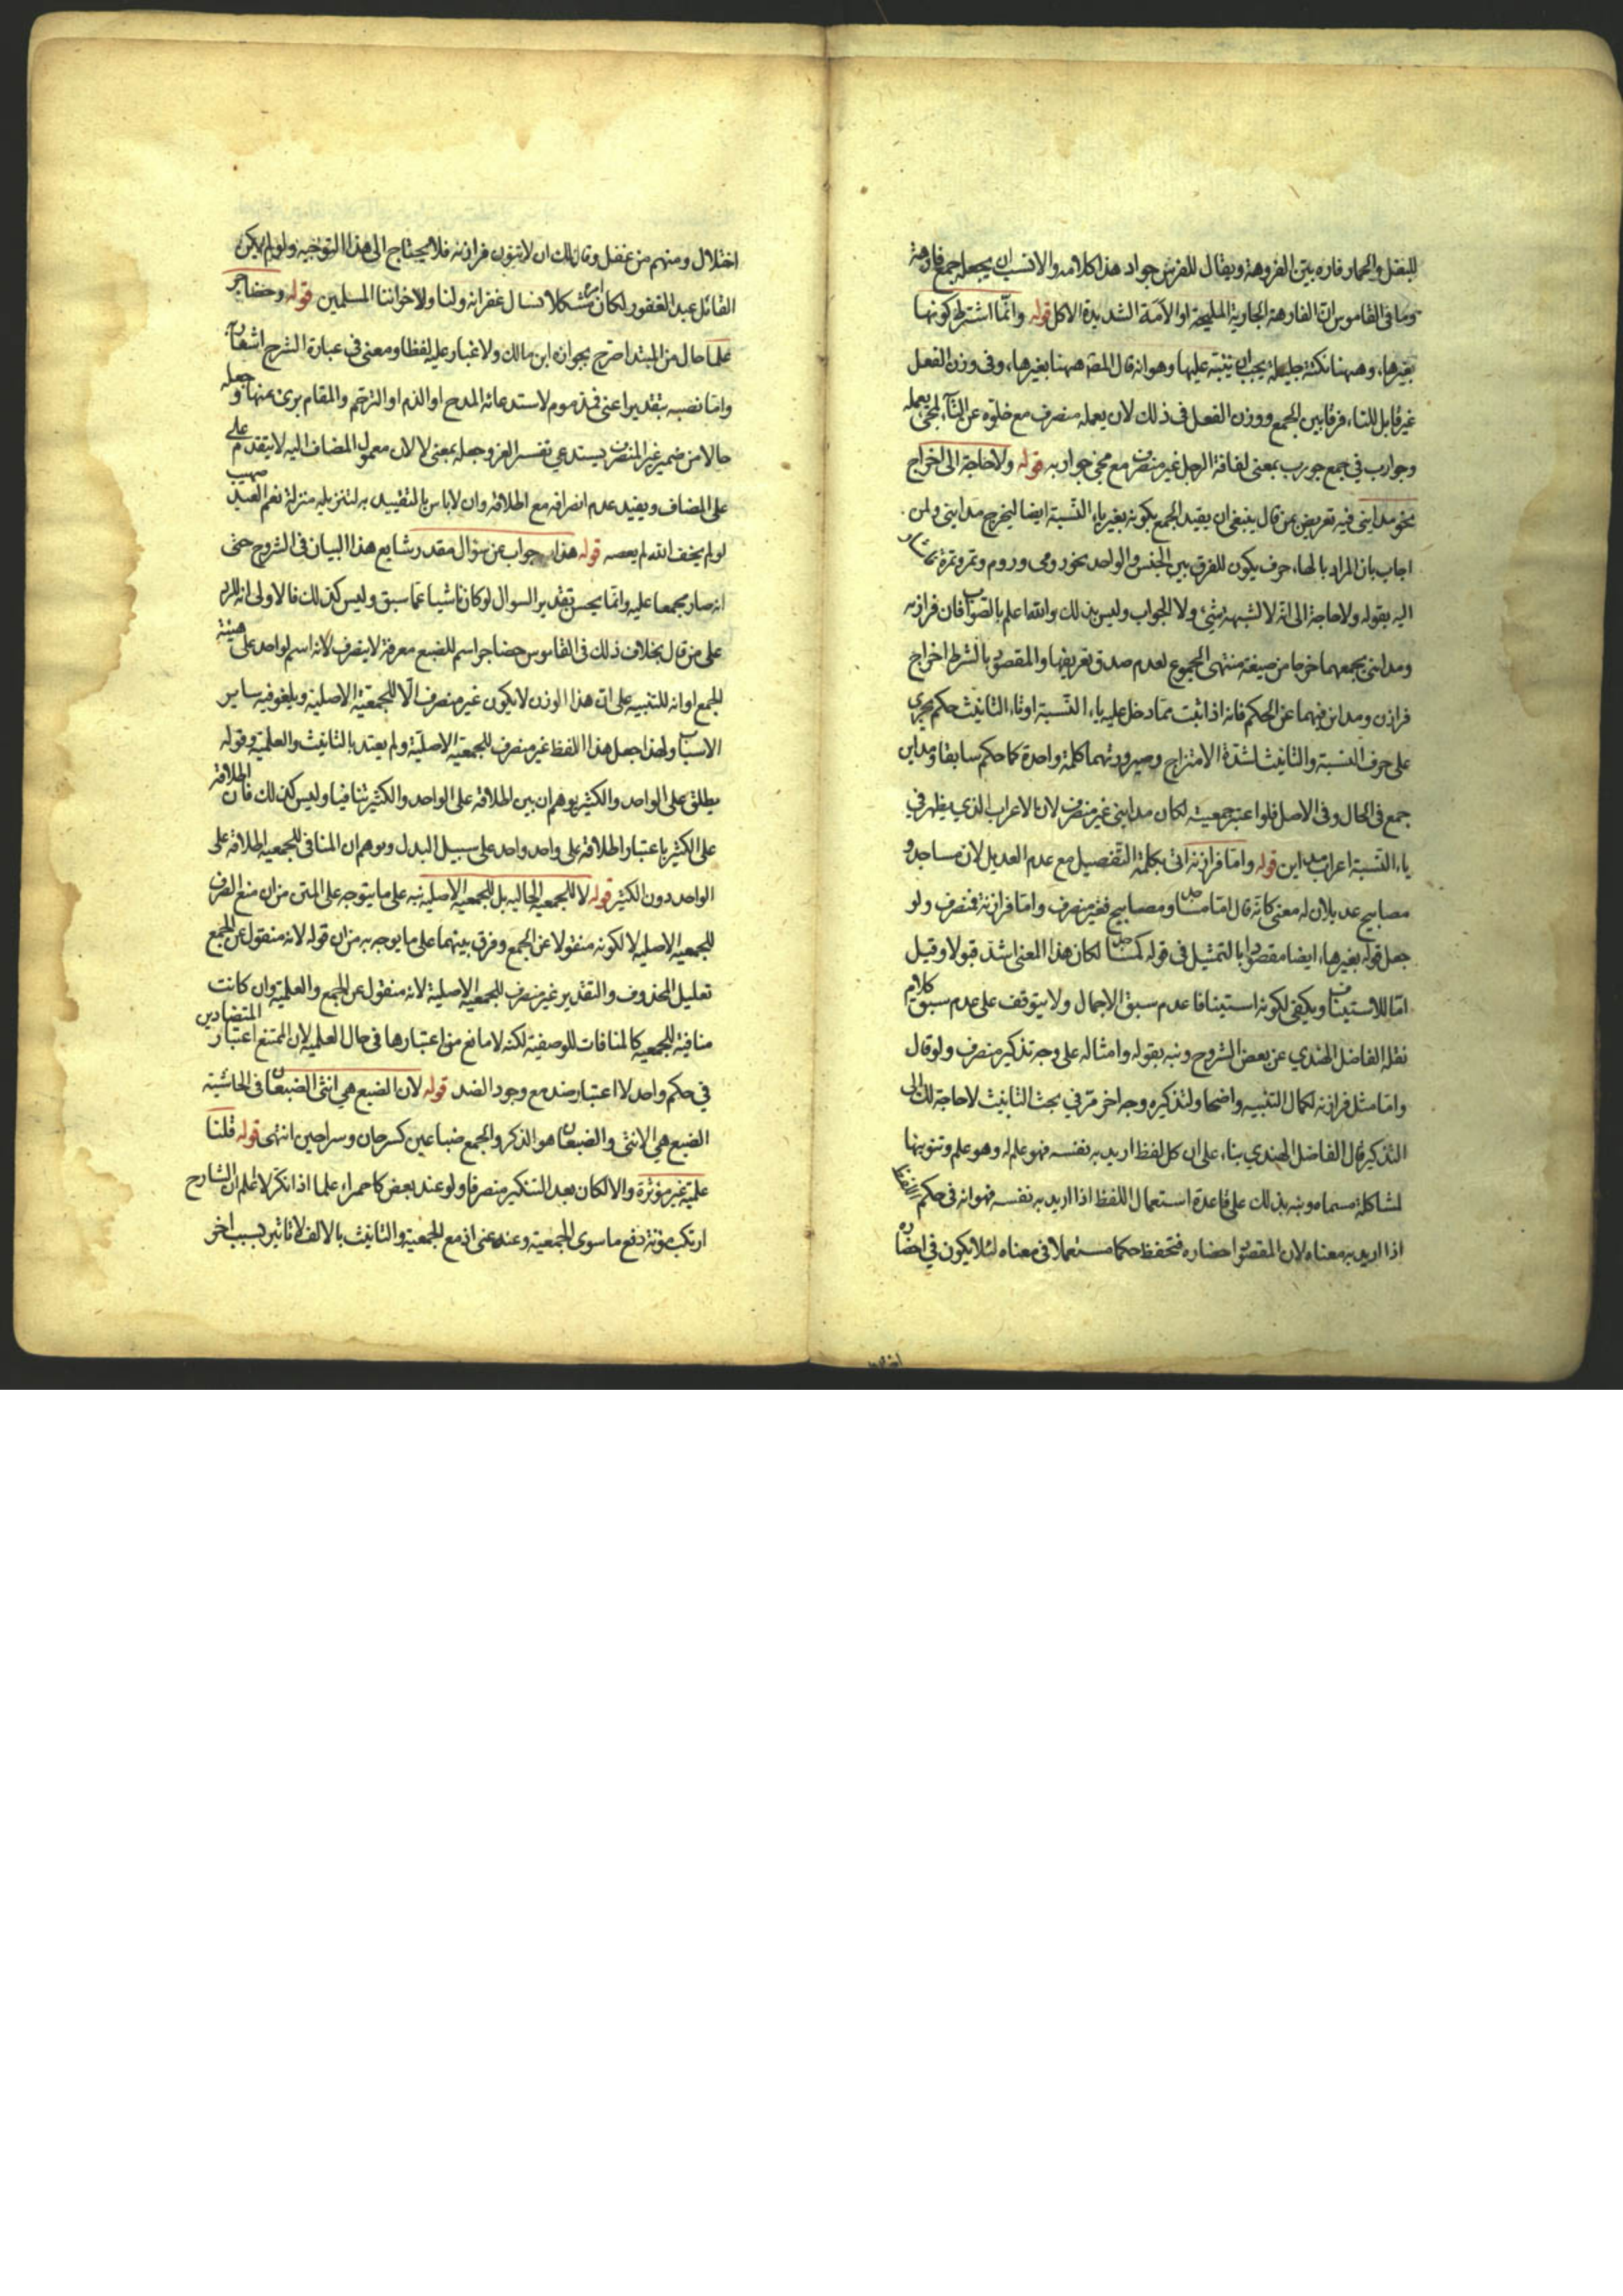 للبغل والحمار فاره بين الفروهة ويقال للفرس جواد هذا كلامه والانسب ان يجعله جمع فارهة
وما في القاموس ان الفارهة الجارية المليحة او الامة الشديدة الاكل قوله وانما اشترط كونها
بغيرها، وههنا نكتة جليلة يجب ان ينبه عليها وهو انه قال المصـ ههنا بغيرها، وفي وزن الفعل
غير قابل للتاء، فرقا بين الجمع ووزن الفعل في ذلك لان يعمله منصرف مع خلوه عن التاء لمجئ يعمله
وجوارب في جمع جورب بمعنى لفافة الرجل غير منصرف مع مجئ جواربه قوله ولا حاجة الى اخراج
نحو مدايني فيه تعريض عمن قال ينبغي ان يقيد الجمع بكونه بغير ياء النسبة ايضا ليخرج مدايني ولمن
اجاب بان المراد بالهاء حرف يكون للفرق بين الجنس والواحد نحو رومي وروم وتمر وتمرة
اليه بقوله ولا حاجة الى انه لا لشبهه بشئ، ولا الجواب وليس بذلك والله اعلم بالصواب فان فرازنه
ومدايني بجمعهما خرجا من صيغة منتهى الجموع لعدم صدق تعريفها والمقصود بالشرط اخراج
فرازن ومداين فيهما عن الحكم فانه اذا ثبت مما دخل عليه ياء النسبة او تاء التانيث حكم يجري
على حرف النسبة والتانيث لشدة الامتزاج وصيرورتهما كلمة واحدة كما حكم سابقا ومداين
جمع في الحال وفي الاصل فلو اعتبر جمعيته لكان مدايني غير منصرف لان الاعراب الذي يظهر في
ياء النسبة اعراب مداين قوله واما فرازنة اتى بكلمة التفصيل مع عدم العديل لان مساجد و
مصابيح عديلان له معنى كانه قال اما مساجد ومصابيح فغير منصرف واما فرازنة فمنصرف ولو
جعل قوله بغيرها، ايضا مقصودا بالتمثيل في قوله كمساجد لكان هذا المعنى اشد قبولا وقيل
اما للاستيناف ويكفي لكونه استينافا عدم سبق الاجمال ولا يتوقف على عدم سبق كلام
نقله الفاضل الهندي عن بعض الشروح ونبه بقوله وامثاله على وجه تذكير منصرف ولو قال
واما مثل فرازنه لكمال التنبيه واضحا ولتذكيره وجه اخر مر في بحث التانيث لا حاجة لك الى
التذكير قال الفاضل الهندي بناء على ان كل لفظ اريد به نفسه فهو علم له وهو علم وتنوينها
لمشاكلة مسماه ونبه بذلك على قاعدة استعمال اللفظ اذا اريد به نفسه فهو انه في حكم اللفظ
اذا اريد به معناه لان المقصود احضاره فتحفظ حكما مستعملا في معناه لئلا يكون في احضاره
اختلال ومنهم من غفل وقال لك ان لا تنون فرازنه فلا يحتاج الى هذا التوجيه ولو لم يكن
القائل عبد الغفور لكان امره مشكلا نسال غفرانه ولنا ولاخواننا المسلمين قوله وحضاجر
علما حال من المبتدا صرح بجوازه ابن مالك ولا غبار عليه لفظا ومعنى في عبارة الشرح اشعار به
واما نصبه بتقدير اعني فمذموم لاستدعائه المدح او الذم او الترحم والمقام برئ عنها وجعله
حالا من ضمير غير المنصرف يستدعي تفسير الغير وجعله بمعنى لا لان معمول المضاف اليه لا يتقدم على
على المضاف ويفيد عدم انصرافه مع اطلاقه وان لا باس بالتقييد به لتنزيله منزلة نعم العبد صهيب
لو لم يخف الله لم يعصه قوله هذا جواب عن سؤال مقدر شايع هذا البيان في الشروح حتى
انه صار مجمعا عليه وانما يحسن تقدير السوال لو كان ناشيا عما سبق وليس كذلك فالاولى انه للرد
على من قال بخلاف ذلك في القاموس حضاجر اسم للضبع معرفة لا ينصرف لانه اسم لواحد على هيئة
الجمع او انه للتنبيه على ان هذا الوزن لا يكون غير منصرف الا للجمعية الاصلية ويلغو فيه ساير
الاسباب ولهذا جعل هذا اللفظ غير منصرف للجمعية الاصلية ولم يعتد بالتانيث والعلمية وقوله
يطلق على الواحد والكثير يوهم ان بين اطلاقه على الواحد والكثير تنافيا وليس كذلك فان اطلاقه
على الكثير باعتبار اطلاقه على واحد واحد على سبيل البدل ويوهم ان المنافي للجمعية اطلاقه على
الواحد دون الكثير قوله لا للجمعية الحالية بل للجمعية الاصلية نبه على ما يتوجه على المتن من ان منع الصرف
للجمعية الاصلية لا لكونه منقولا عن الجمع وفرق بينهما على ما يوجه به من ان قوله لانه منقول عن الجمع
تعليل المحذوف والتقدير غير منصرف للجمعية الاصلية لانه منقول عن الجمع والعلمية وان كانت
منافية للجمعية كالمنافات للوصفية لكنه لا مانع من اعتبارها في حال العلمية لان الممتنع اعتبار المتضادين
في حكم واحد لا اعتبار ضد مع وجود الضد قوله لان الضبع هي انثى الضبعان في الحاشية
الضبع هي الانثى والضبعان هو الذكر والجمع ضباعين كسرحان وسراحين انتهى قوله قلنا
علمية غير مؤثرة والا لكان بعد التنكير منصرفا ولو عند بعض كاحمراء علما اذا نكر لا اعلم ان الشارح
ارتكب مؤنة دفع ما سوى الجمعية وعنده غنى اذ مع الجمعية والتانيث بالالف لا تاثير لسبب اخر